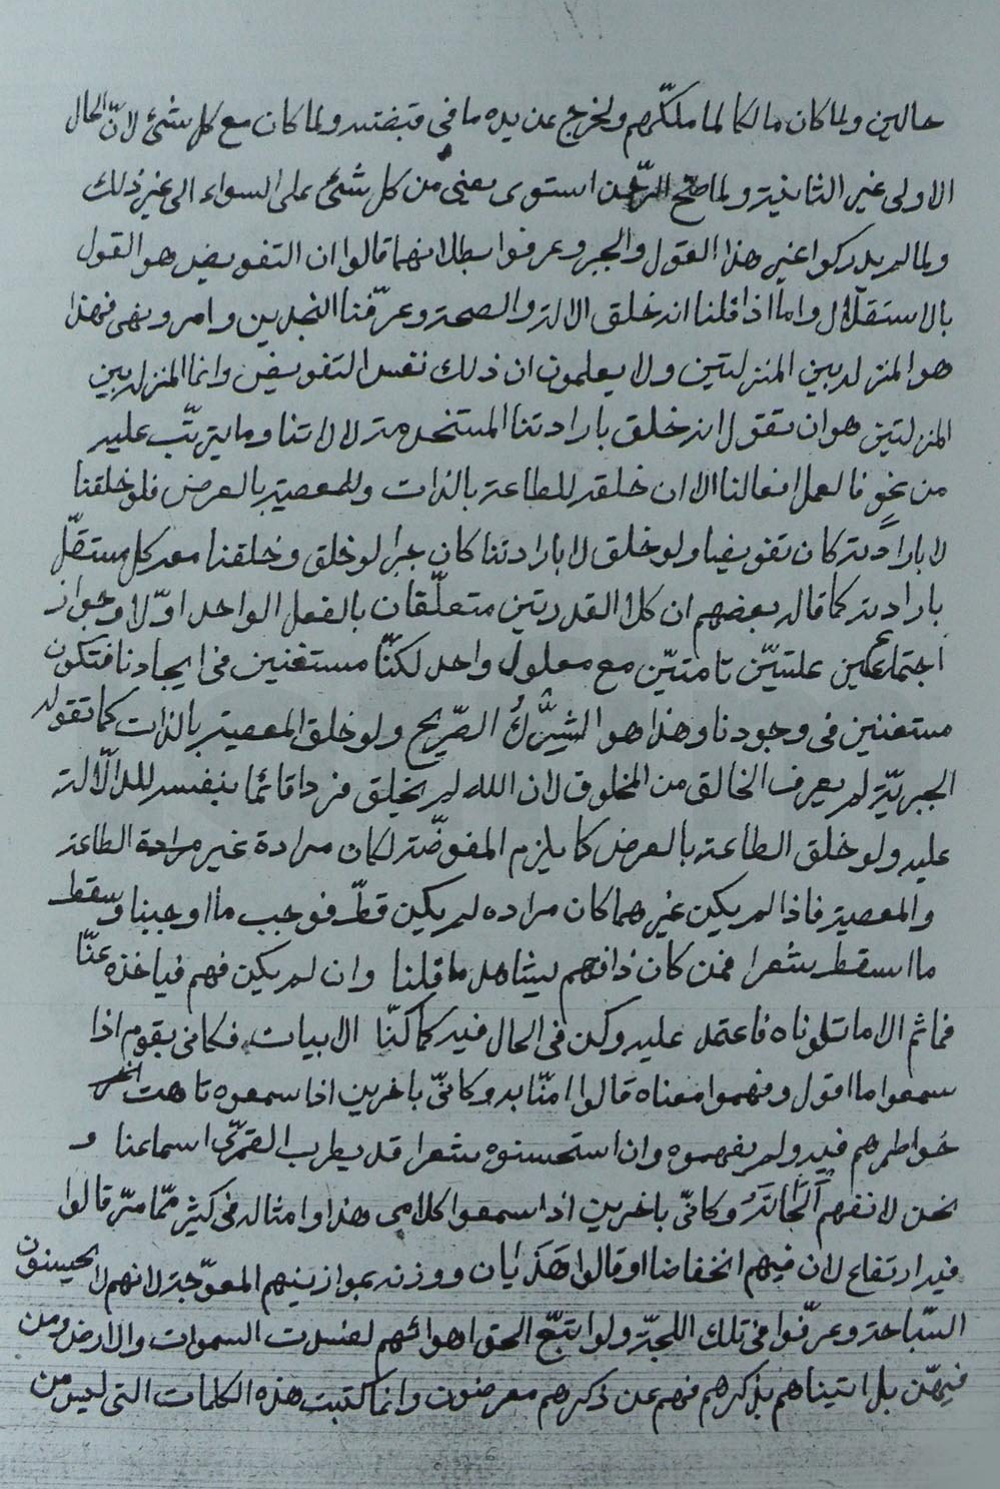 حالين ولما كان مالكا لما ملكهم ولخرج عن يده ما في قبضته ولما كان مع كل شئ لانّ الحال
الاولى غير الثانية ولما صحّ الرّحمن استوى يعني من كل شئ على السواء الى غير ذلك
ولما لم يدركوا غير هذا القول والجبر وعرفوا بطلانهما قالوا ان التفويض هو القول
بالاستقلال واما اذا قلنا انه خلق الالة والصحة وعرّفنا النجدين وامر ونهى فهذا
هو المنزلة بين المنزلتين ولا يعلمون ان ذلك نفس التفويض وانما المنزلة بين
المنزلتين هو ان تقول انه خلق بارادتنا المستخدمة لالاتنا وما يترتّب عليه
من نحو فالعمل افعالنا الا ان خلقه للطاعة بالذات وللمعصية بالعرض فلو خلقنا
لا بارادته كان تفويضا ولو خلق لا بارادتنا كان جبرا لو خلق وخلقنا معه كل مستقلّ
بارادته كما قاله بعضهم ان كلا القدرتين متعلّقان بالفعل الواحد اوّلا وجواز
اجتماع علتيّن تامتيّن مع معلول واحد لكنّا مستغنين في ايجادنا فنكون
مستغنين في وجودنا وهذا هو الشِّركُ الصّريح ولو خلق المعصية بالذات كما تقوله
الجبريّة لم يعرف الخالق من المخلوق لان الله لم يخلق فردا قائما بنفسه للدلالة
عليه ولو خلق الطاعة بالعرض كما يلزم المفوضّة لكان مراده غير مرادة الطاعة
والمعصية فاذا لم يكن غيرهما كان مراده لم يكن قطّ فوجب ما اوجبنا وسقط
ما اسقط شعرا فمن كان ذا فهم يشاهد ما قلنا وان لم يكن فهم فياخذه عنّا
فما ثم الا ما تلوناه فاعتمد عليه وكن في الحال فيه كما كنّا الابيات فكاني بقوم اذا
سمعوا ما اقول وفهموا معناه قالوا امنّا به وكانّي باخرين اذا سمعوه تاهت
خواطرهم فيه ولم يفهموه وان استحسنوه شعرا قد يطرب القمرّى اسماعنا و
نحن لا نفهم الحانه وكانّي باخرين اذا سمعوا كلامي هذا وامثاله في كثير ممّا مرّ قالوا
فيه ارتفاع لان فيهم انخفاضا او قالوا هَذَيان ووزنه بموازينهم المعوّجة لانهم لا يحسنون
السّباحة وغرّقوا في تلك اللجّة ولو اتبع الحق اهوائهم لفسدت السموات والارض ومن
فيهّن بل اتيناهم بذكرهم فهم عن ذكرهم معرضون وانما كتبت هذه الكلمات التي ليس من